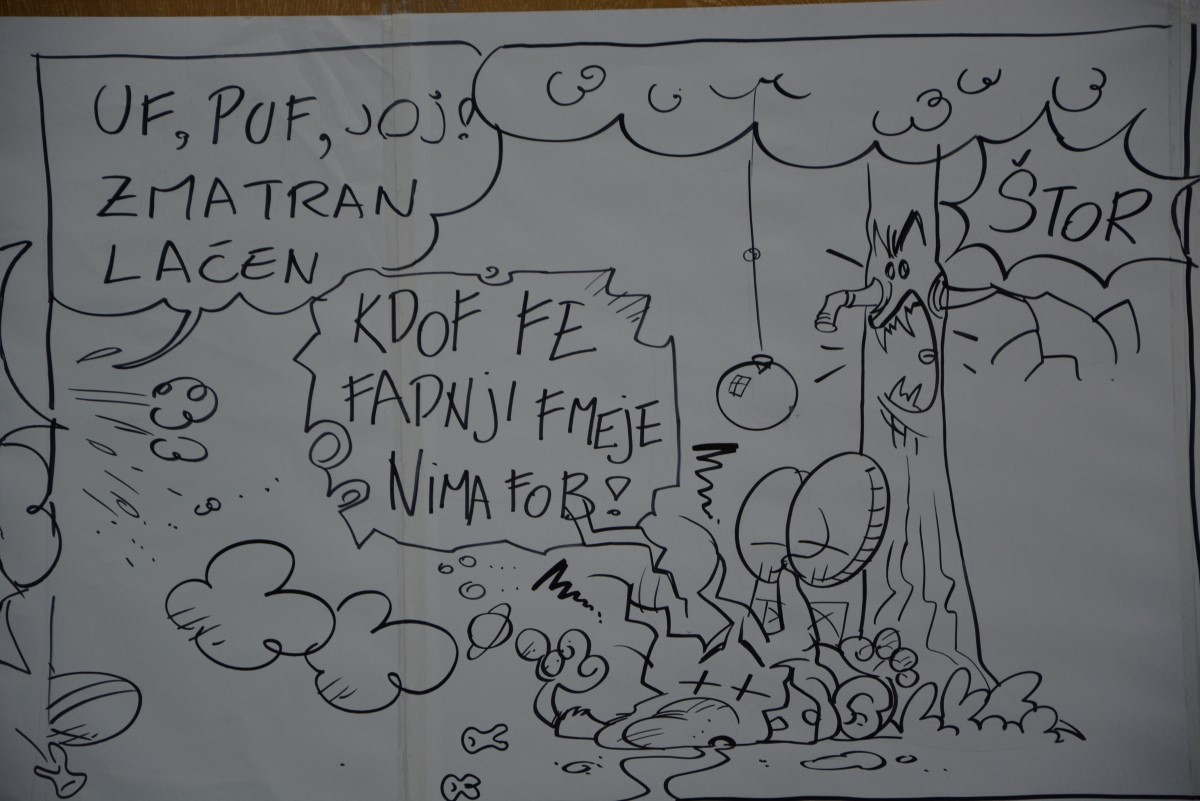 UF, PUF, JOJ!
ZMATRAN
LAČEN
ŠTOR
KDOF FE
FADNJI FMEJE
NIMA FOB!